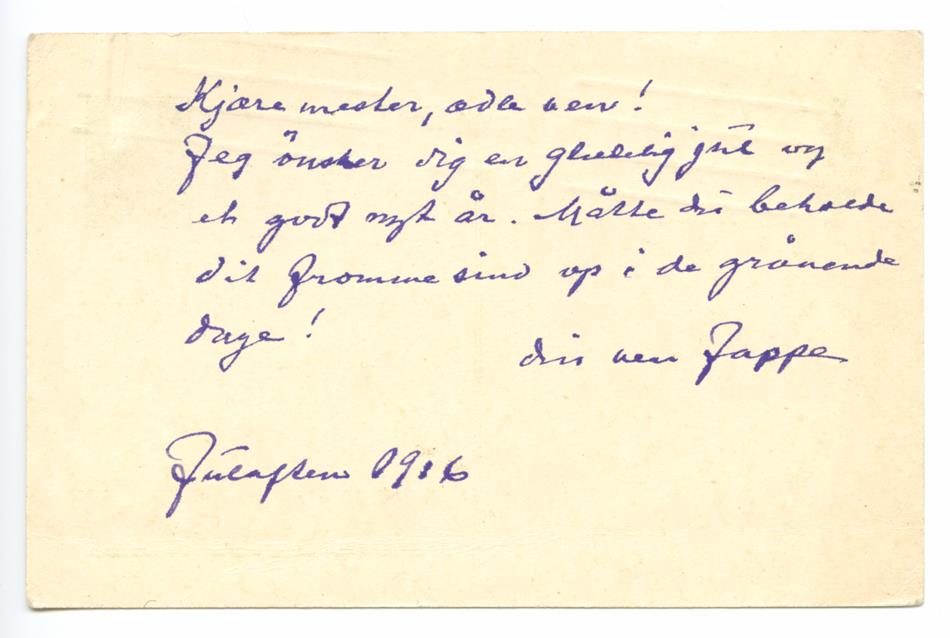 Kjære mester, ædle ven!
Jeg önsker dig en gladelig jul og
et godt nyt år. Måtte du beholde
dit fromme sind op i de grånende
dage!
din ven Jappe
Julaften 1916